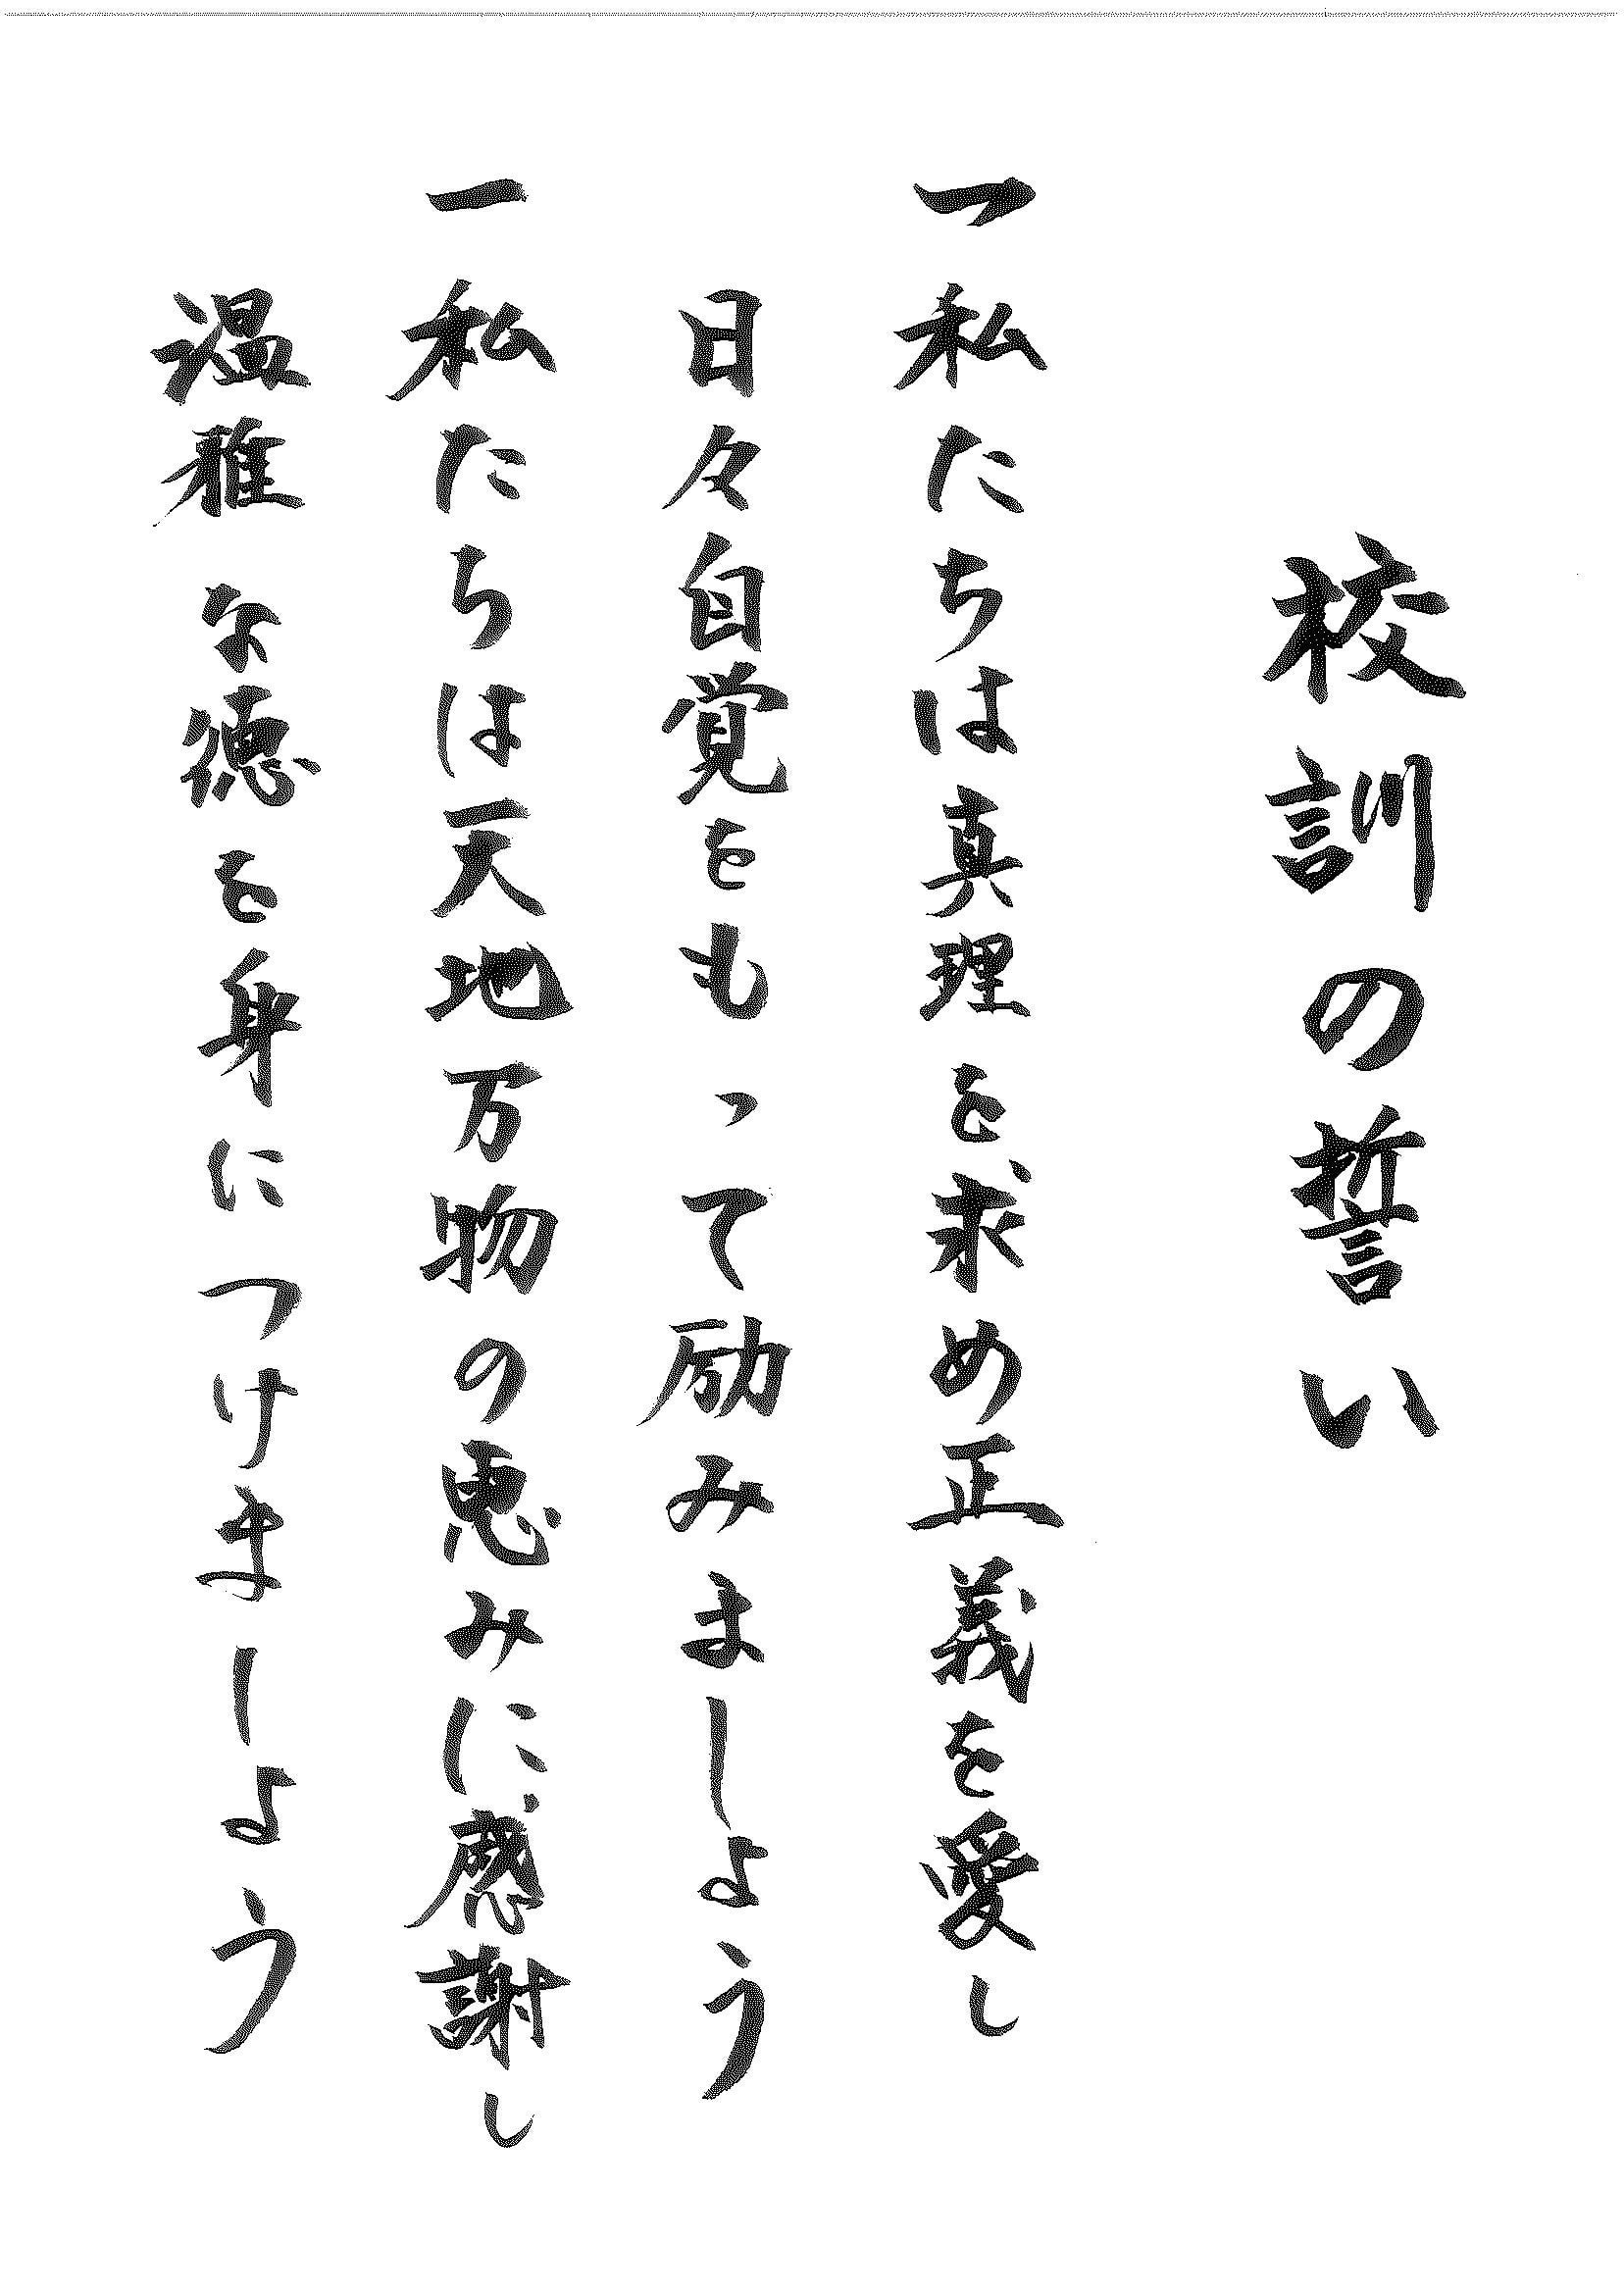 校訓の誓い
一私たちは真理を求め正義を愛し
日々自覚をもって励みましょう
一私たちは天地万物の恵みに感謝し
温雅な徳を身につけましょう